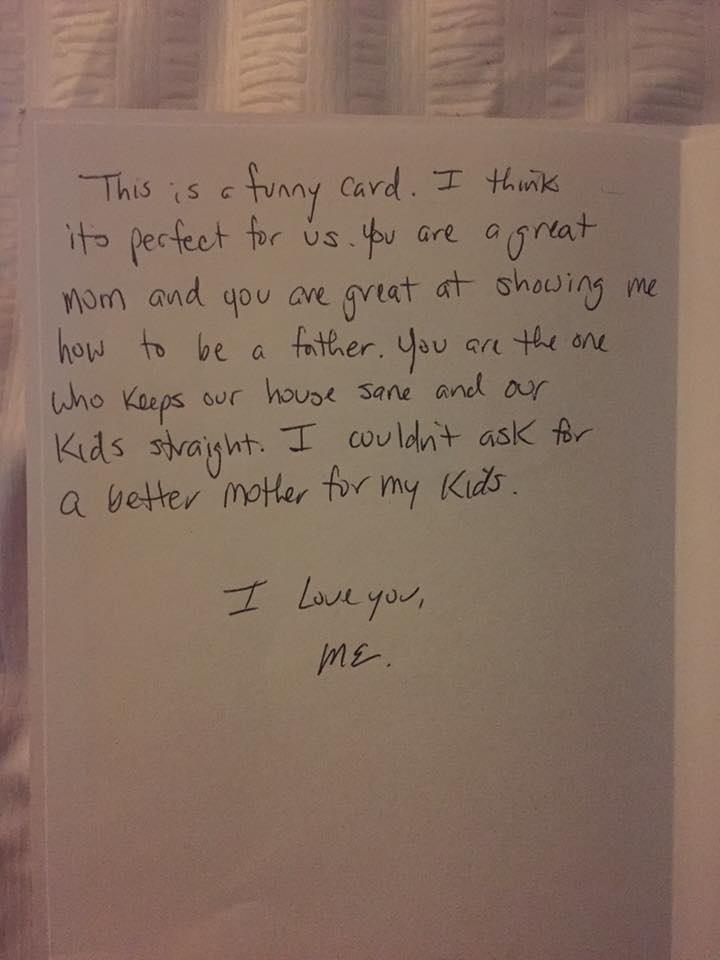 This is a funny card. I think
it's perfect for us. You are a great
mom and you are great at showing me
how to be a father. You are the one
who keeps our house sane and our
kids straight. I couldn't ask for
a better mother for my kids.
I Love you,
ME.